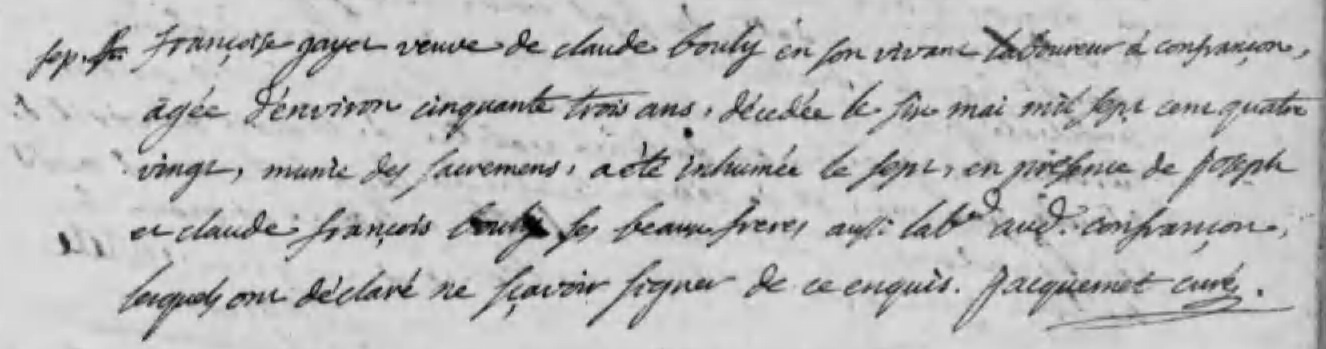 sep. fr. françoise gayer veuve de claude bouly en son vivant laboureur à confrançon,
âgée d'environ cinquante trois ans, décédée le six mai mil sept cent quatre
vingt, munie des sacremens, a été inhumée le sept, en présence de joseph
et claude françois bouly ses beaux freres aussi lab.rs aud. confrançon,
lesquels ont déclaré ne sçavoir signer de ce enquis. jacquemet curé.